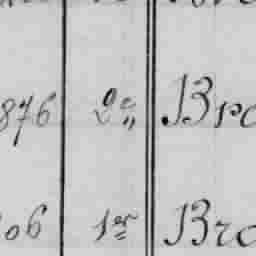 876 2e Bro
06 1er Bro